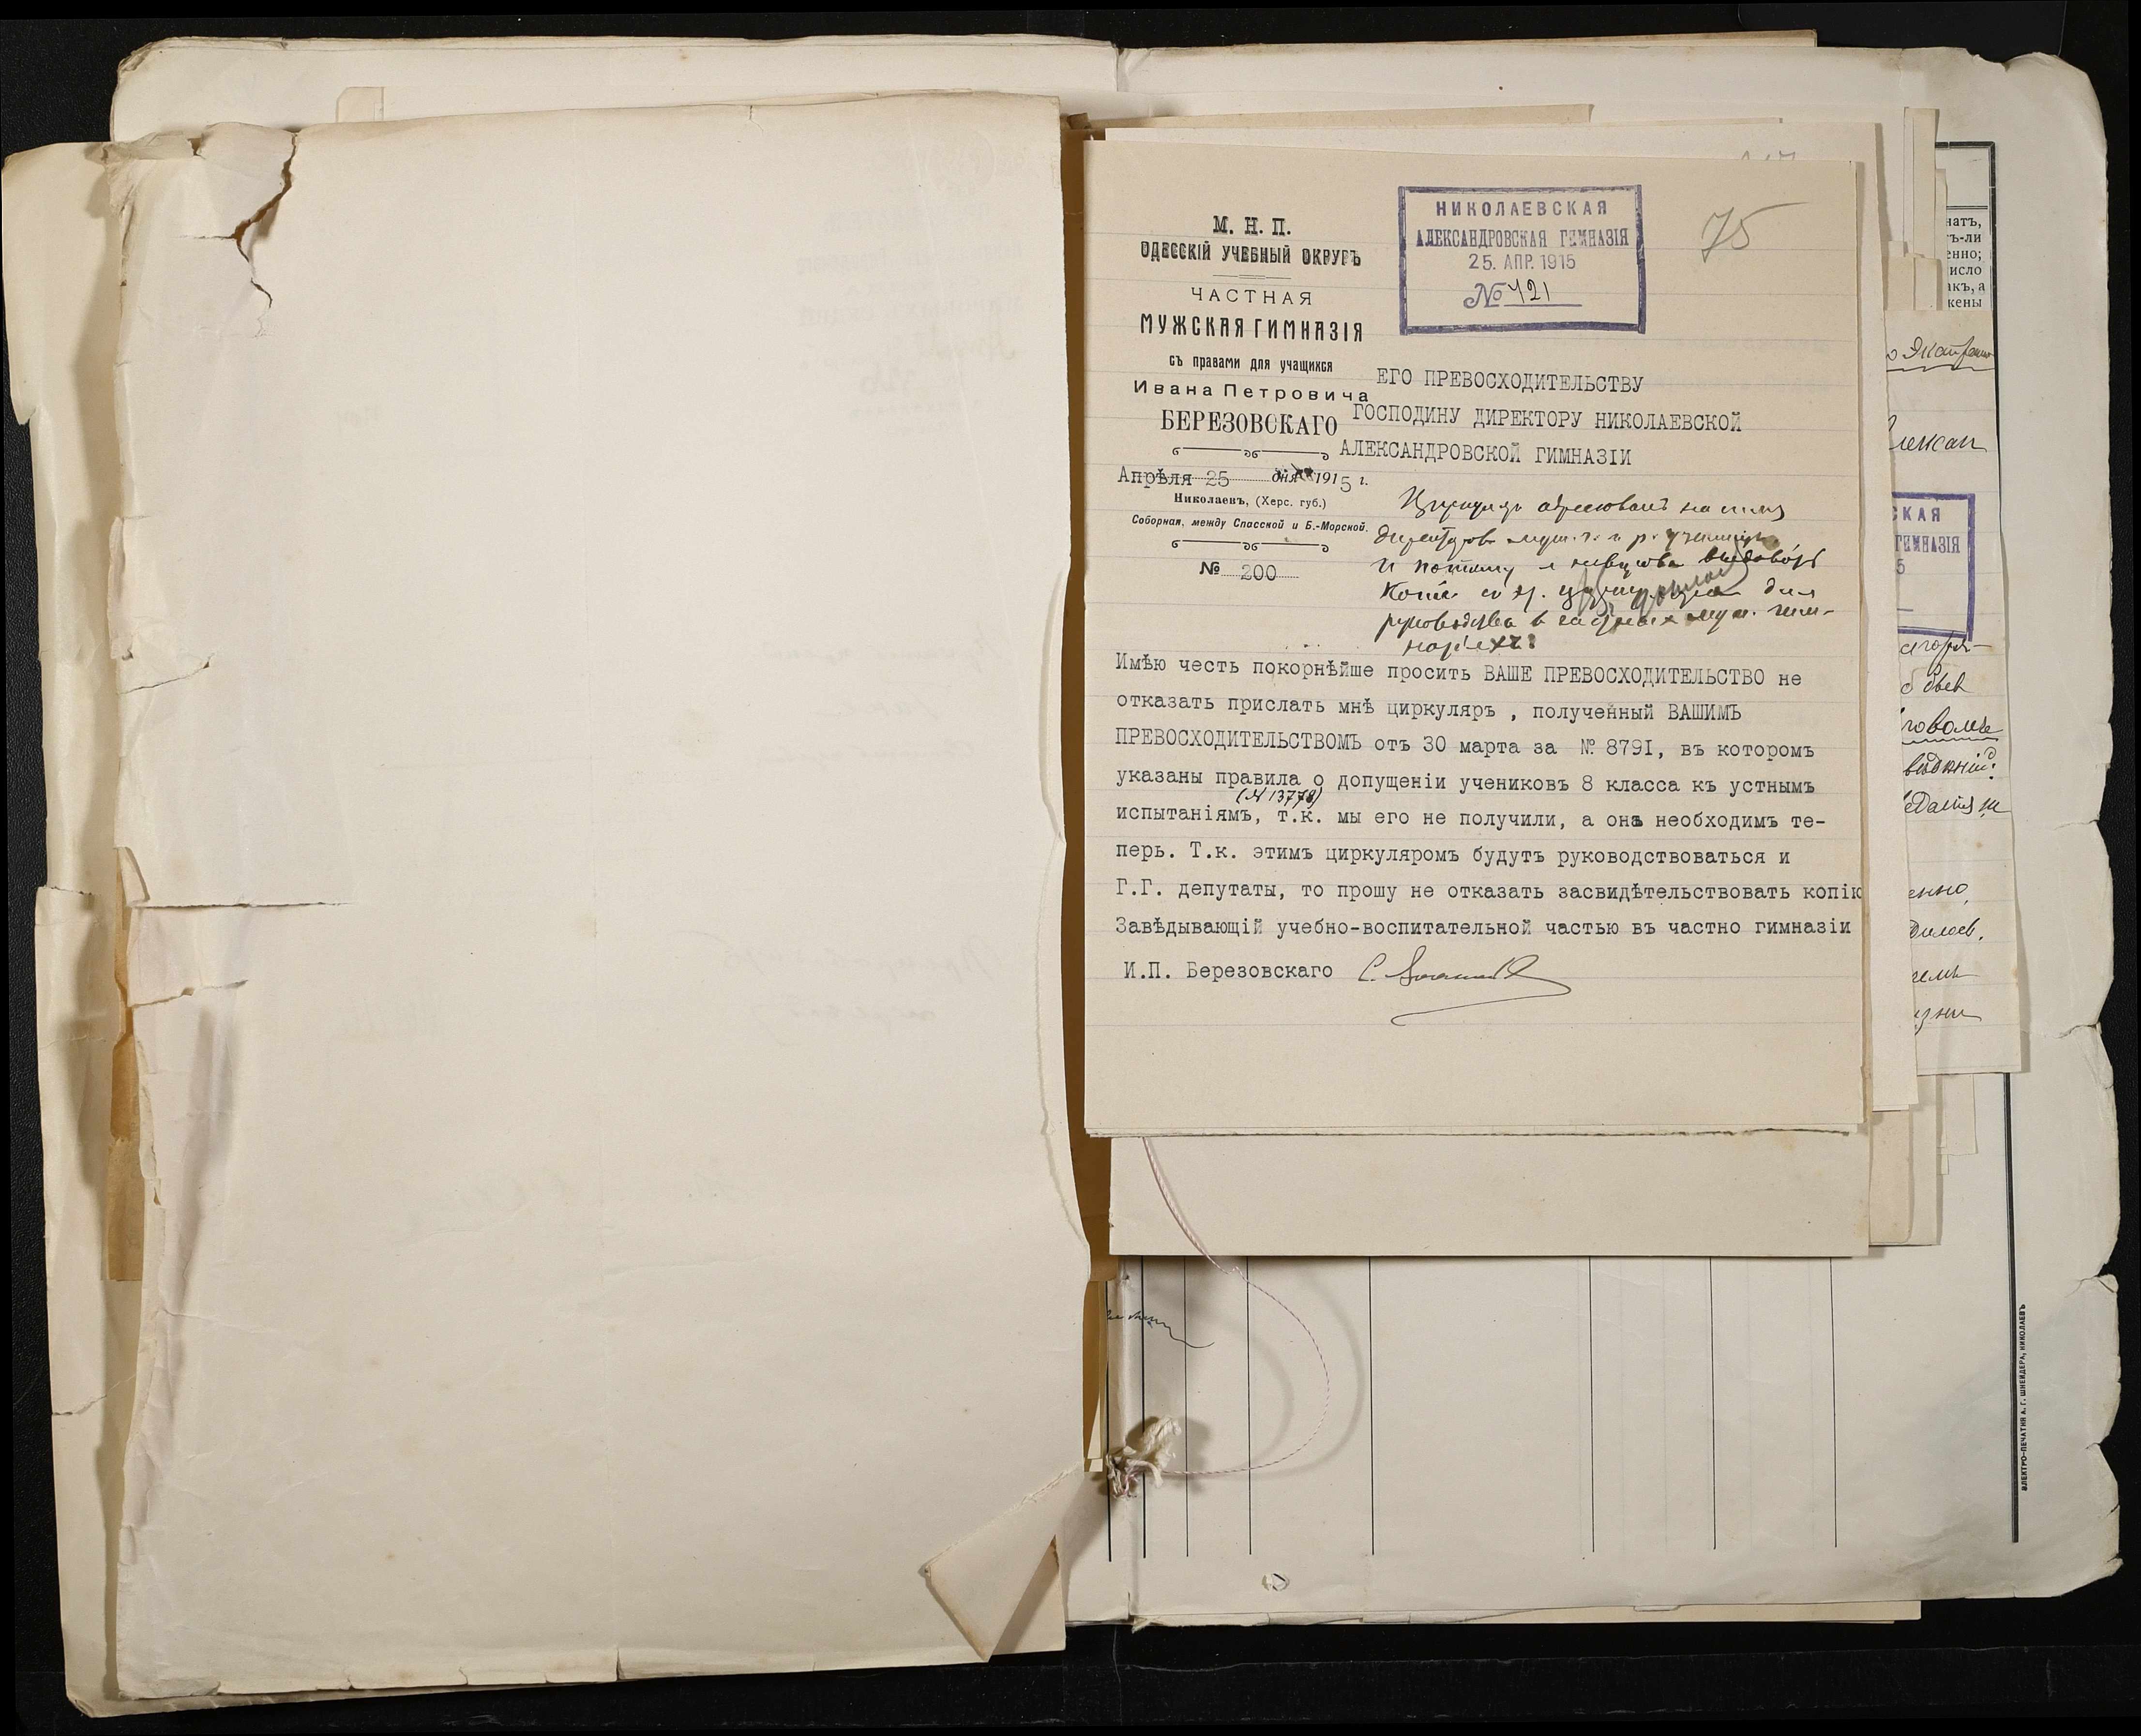 М. Н. П.
ОДЕССКІЙ УЧЕБНЫЙ ОКРУГЪ
ЧАСТНАЯ
МУЖСКАЯ ГИМНАЗІЯ
съ правами для учащихся
Ивана Петровича
БЕРЕЗОВСКАГО
Апрѣля 25 дня 1915 г.
Николаевъ, (Херс. губ.)
Соборная, между Спасской и Б.-Морской.
№ 200
НИКОЛАЕВСКАЯ
АЛЕКСАНДРОВСКАЯ ГИМНАЗІЯ
25. АПР. 1915
№ 421
75
ЕГО ПРЕВОСХОДИТЕЛЬСТВУ
ГОСПОДИНУ ДИРЕКТОРУ НИКОЛАЕВСКОЙ
АЛЕКСАНДРОВСКОЙ ГИМНАЗІИ
Циркуляр адресованъ на имя
директоров муж. г. и р. училищъ
и потому я
для
руководства в частных муж. гим-
назіяхъ?
Имѣю честь покорнѣйше просить ВАШЕ ПРЕВОСХОДИТЕЛЬСТВО не
отказать прислать мнѣ циркуляръ , полученный ВАШИМЪ
ПРЕВОСХОДИТЕЛЬСТВОМЪ отъ 30 марта за № 879I, въ которомъ
указаны правила о допущеніи учениковъ 8 класса къ устнымъ
(№ 13778)
испытаніямъ, т.к. мы его не получили, а онъ необходимъ те-
перь. Т.к. этимъ циркуляромъ будутъ руководствоваться и
Г.Г. депутаты, то прошу не отказать засвидѣтельствовать копію
Завѣдывающій учебно-воспитательной частью въ частно гимназіи
И.П. Березовскаго
натъ,
ть-ли
енно;
исло
акъ, а
жены
СКАЯ
ГИМНАЗІЯ
5
енно,
ЭЛЕКТРО-ПЕЧАТНЯ А. Г. ШНЕЙДЕРА, НИКОЛАЕВЪ